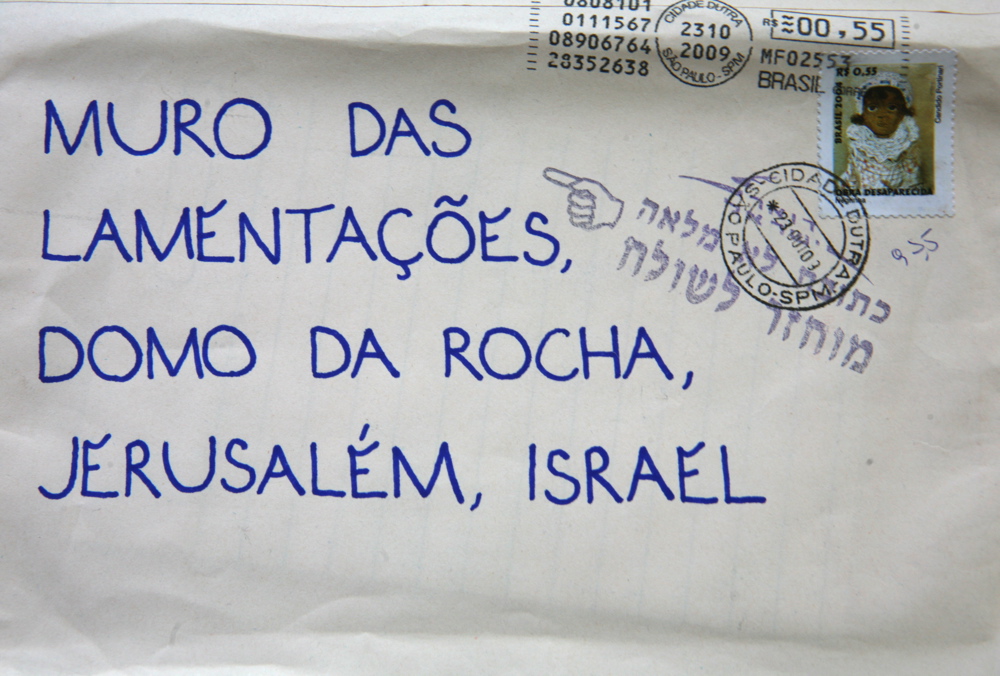 0808101
0111567
08906764
28352638
CIDADE DUTRA
2310
2009
SÃO PAULO-SPM
R$ 00,55
MF02553
BRASIL
R$ 0.55
BRASIL 2008
Candido Portinari
OBRA DESAPARECIDA
MURO DAS
LAMENTAÇÕES,
DOMO DA ROCHA,
JERUSALÉM, ISRAEL
כתובת לא מלאה
מוחזר לשולח
CIDADE DUTRA
PAULO-SPM